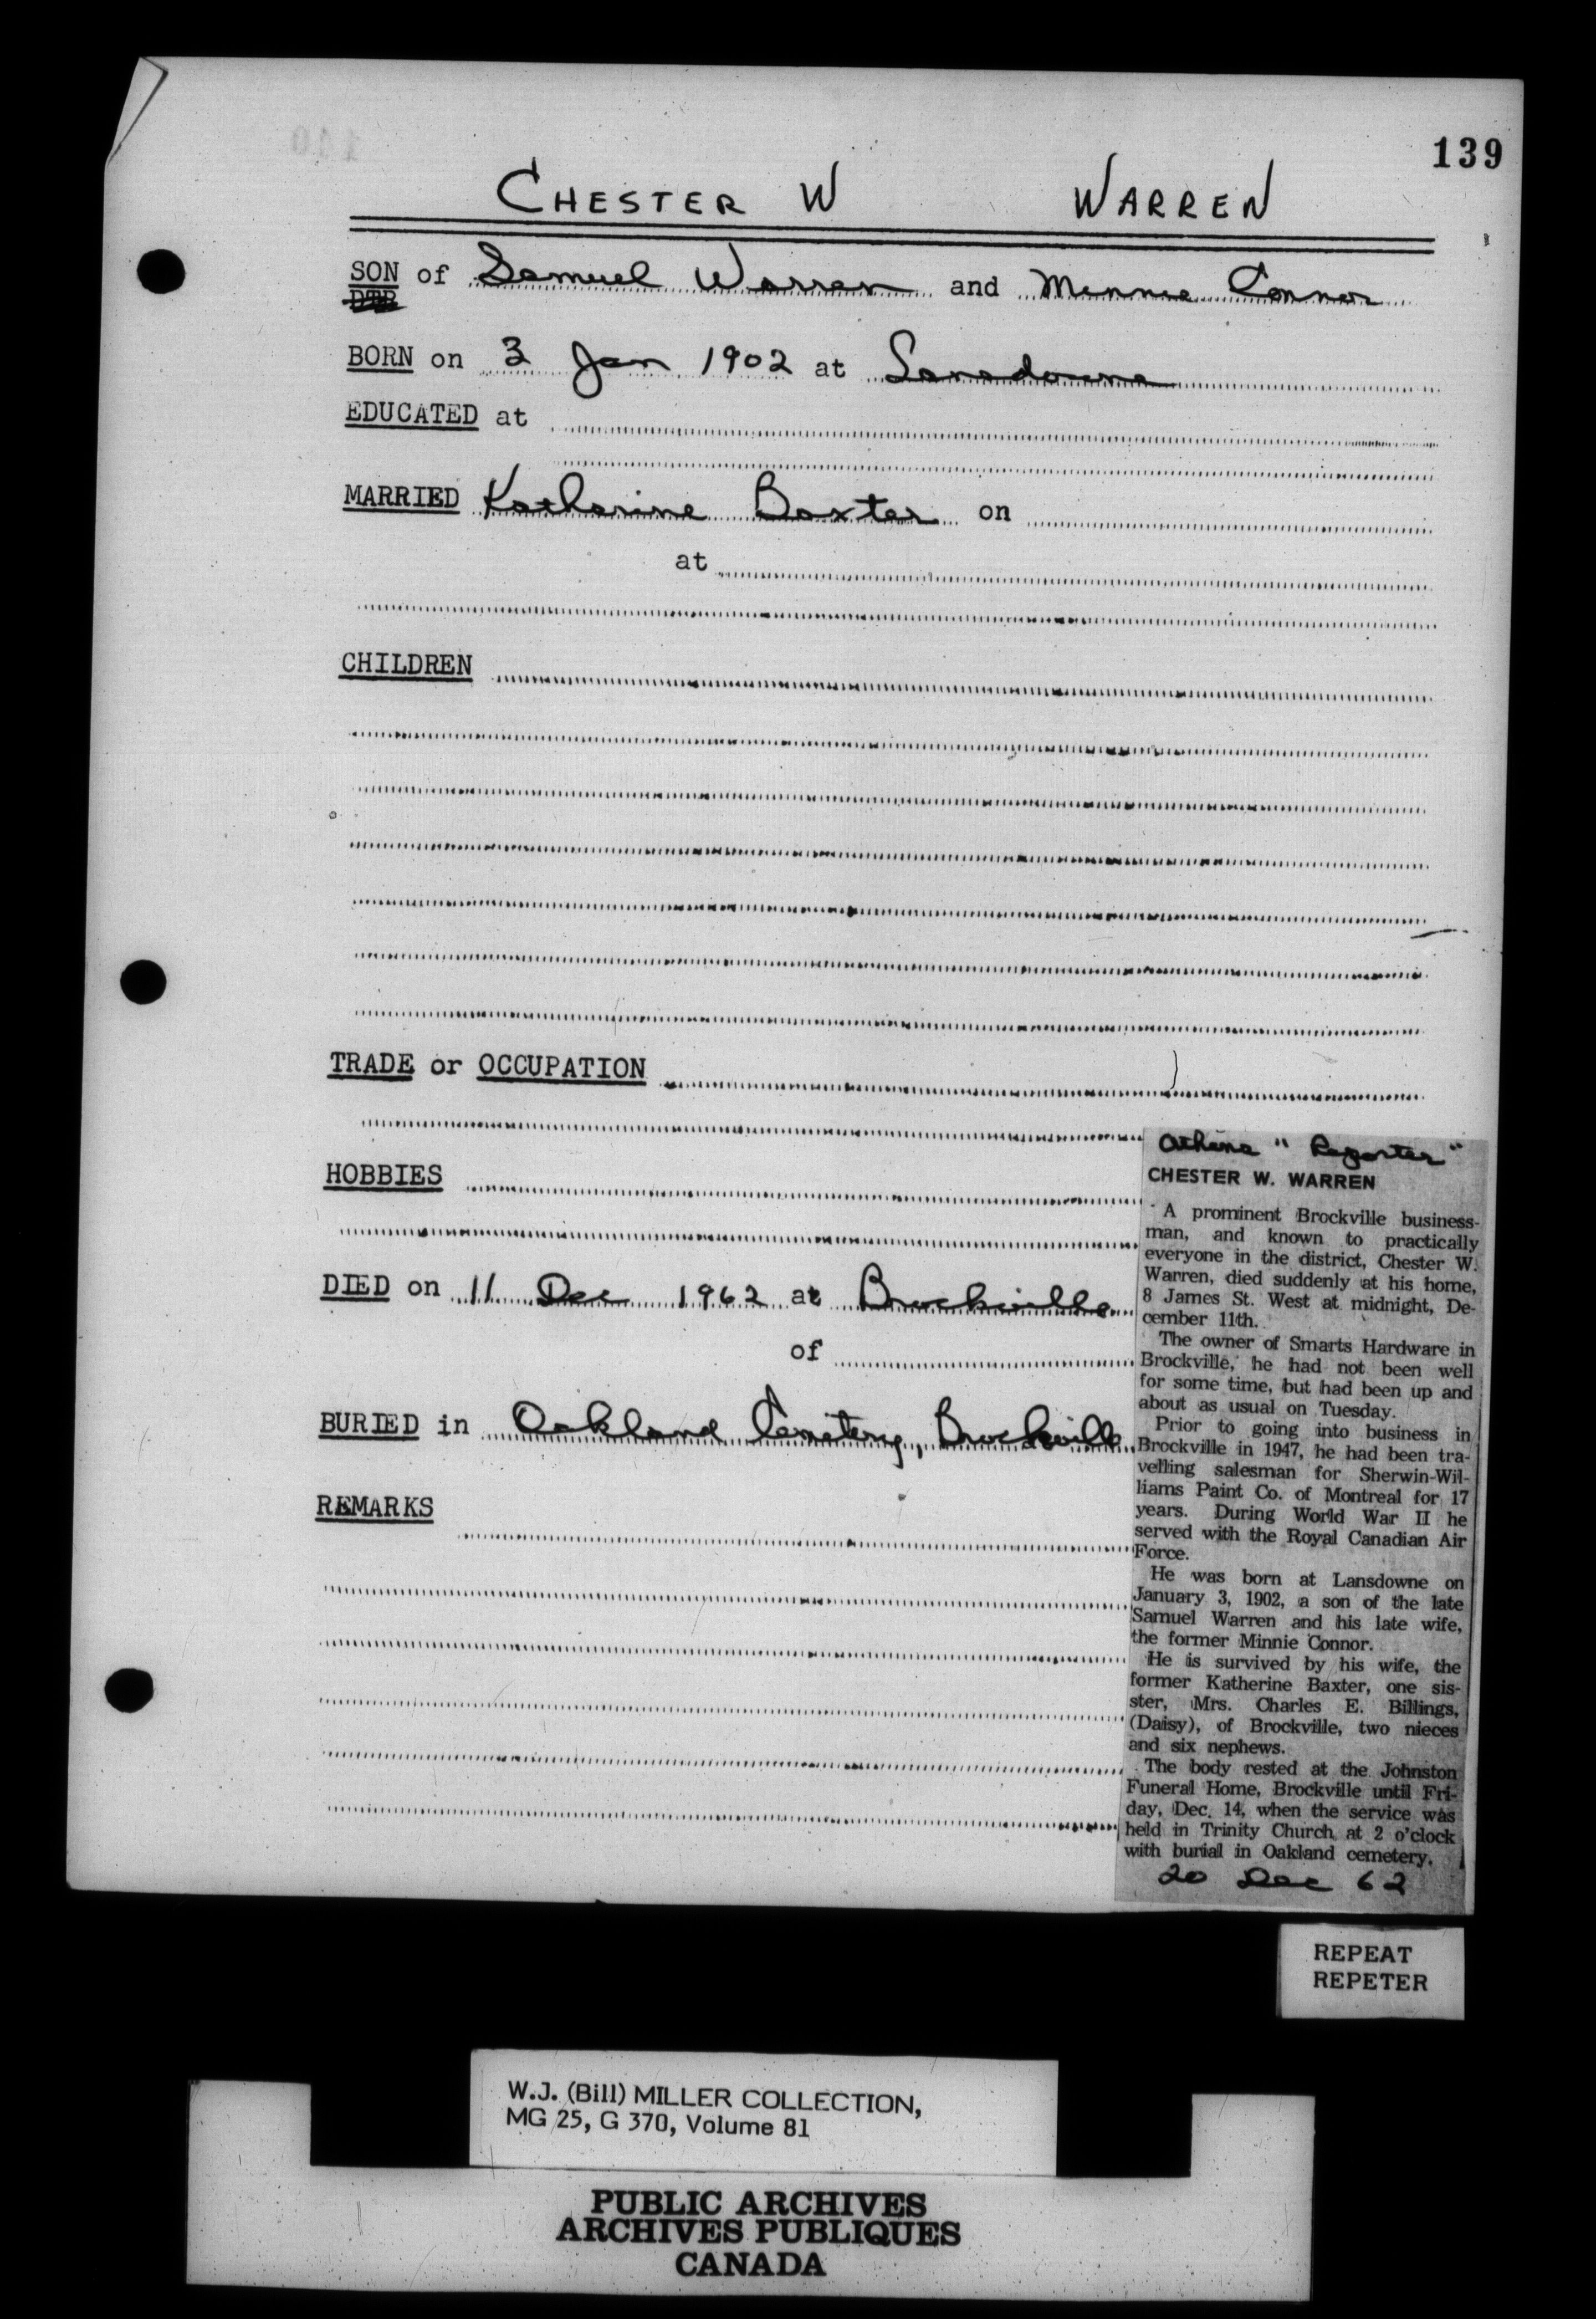 139
CHESTER W WARREN
SON of Samuel Warren and Minnie Connor
DTR
BORN on 3 Jan 1902 at Lansdowne
EDUCATED at
MARRIED Katharine Baxter on
at
CHILDREN
TRADE or OCCUPATION
HOBBIES
DIED on 11 Dec 1962 at Brockville
of
BURIED in Oakland Cemetery, Brockville
REMARKS
Athens "Reporter"
CHESTER W. WARREN
A prominent Brockville business-
man, and known to practically
everyone in the district, Chester W.
Warren, died suddenly at his home,
8 James St. West at midnight, De-
cember 11th.
The owner of Smarts Hardware in
Brockville, he had not been well
for some time, but had been up and
about as usual on Tuesday.
Prior to going into business in
Brockville in 1947, he had been tra-
velling salesman for Sherwin-Wil-
liams Paint Co. of Montreal for 17
years. During World War II he
served with the Royal Canadian Air
Force.
He was born at Lansdowne on
January 3, 1902, a son of the late
Samuel Warren and his late wife,
the former Minnie Connor.
He is survived by his wife, the
former Katherine Baxter, one sis-
ster, Mrs. Charles E. Billings,
(Daisy), of Brockville, two nieces
and six nephews.
The body rested at the Johnston
Funeral Home, Brockville until Fri-
day, Dec. 14, when the service was
held in Trinity Church at 2 o'clock
with burial in Oakland cemetery.
20 Dec 62
REPEAT
REPETER
W.J. (Bill) MILLER COLLECTION,
MG 25, G 370, Volume 81
PUBLIC ARCHIVES
ARCHIVES PUBLIQUES
CANADA